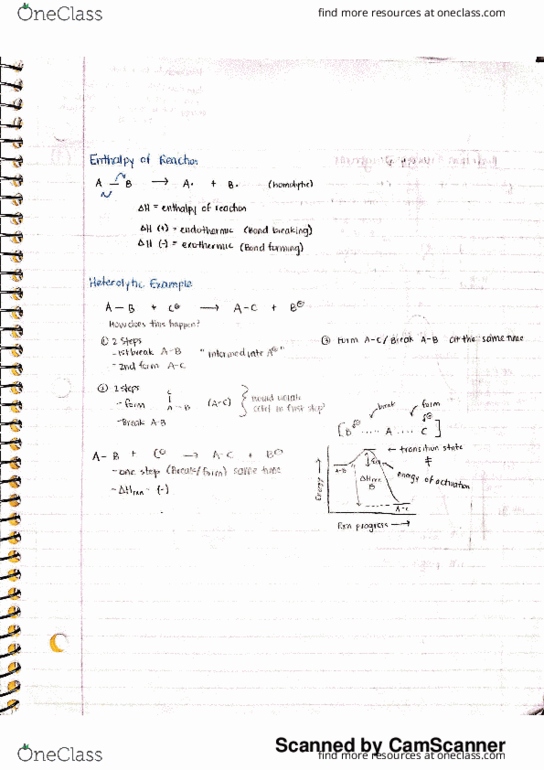 OneClass
find more resources at oneclass.com
Enthalpy of Reaction
A — B → A• + B• (homolytic)
ΔH = enthalpy of reaction
ΔH (+) = endothermic (Bond breaking)
ΔH (-) = exothermic (Bond forming)
Heterolytic Example
A — B + C⊖ → A-C + B⊖
How does this happen?
① 2 Steps
-1st break A-B "intermediate A⊕"
-2nd form A-C
③ Form A-C/Break A-B at the same time
② 2 steps
-form
C
A — B
(A-C)
would violate
octet in first step?
-Break A-B
break
form
[B ..... A ..... C]
A- B + C⊖ → A-C + B⊖
-one step (Break/form) same time
-ΔHrxn - (-)
← transition state
‡
energy of activation
Energy →
A-B
ΔHrxn
A-C
Rxn progress →
Scanned by CamScanner
OneClass
find more resources at oneclass.com